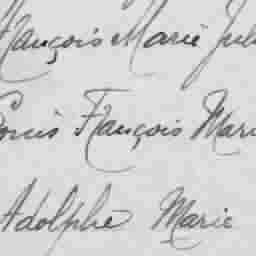 François Marie Jul
Louis François Mari
Adolphe Marie